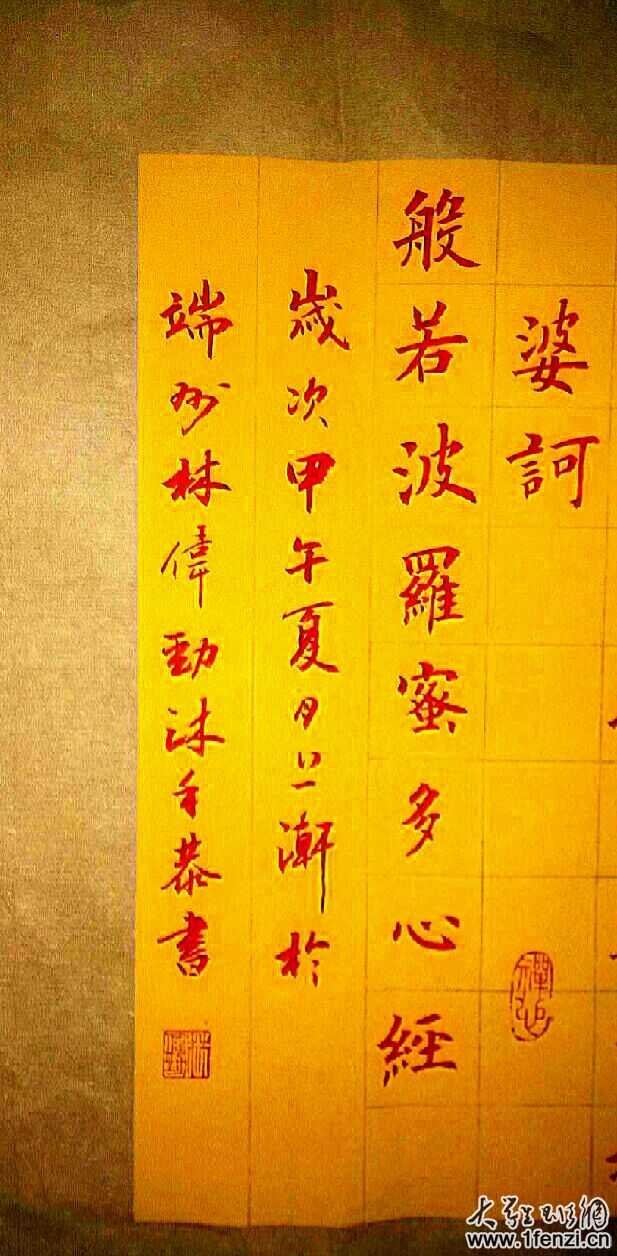 婆訶
般若波羅蜜多心經
歲次甲午夏月上澣於
端州林偉勁沐手恭書
禪心
www.1fenzi.cn